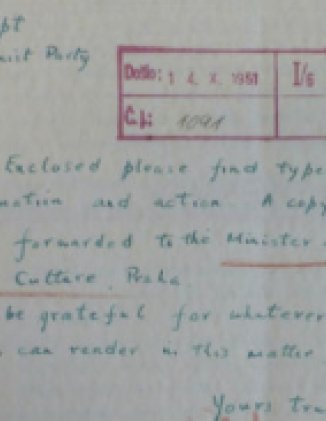 pt
Party
Došlo: 1 4. X. 1951 I/6
Č.j.: 1091
Enclosed please find type
and action. A copy
forwarded to the Minister
Culture, Praha.
be grateful for whatever
can render in this matter
Yours tru